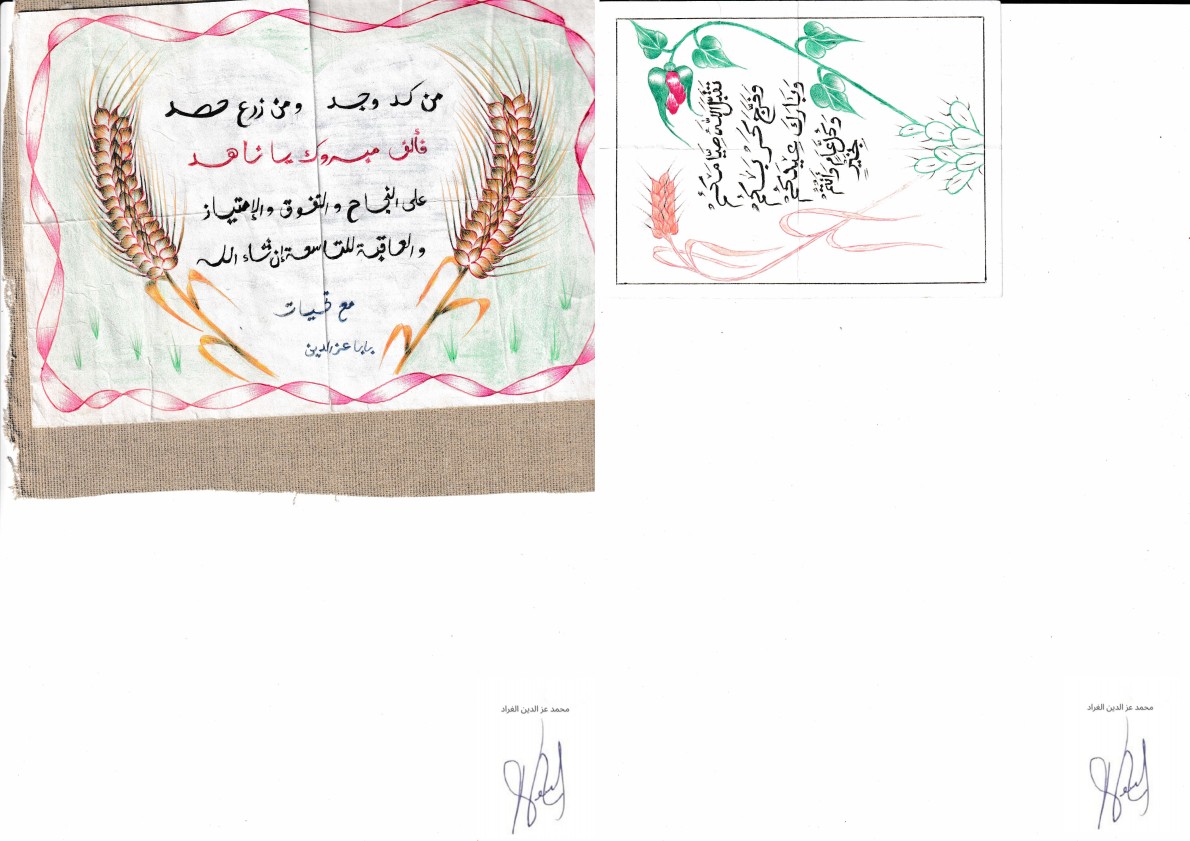 من كد وجد ومن زرع حصد
فألف مبروك يا ناهد
على النجاح والتفوق والإمتياز
والعاقبة للتاسعة إن شاء الله
مع تحيات
بابا عز الدين
تَقَبَّلَ اللهُ صِيَامَكُمْ
وَفَرَّجَ كَرْبَكُمْ
وَبَارَكَ عِيدَكُمْ
وَكُلُّ عَامٍ وَأَنْتُمْ
بِخَيْرٍ
محمد عز الدين الغراد
محمد عز الدين الغراد